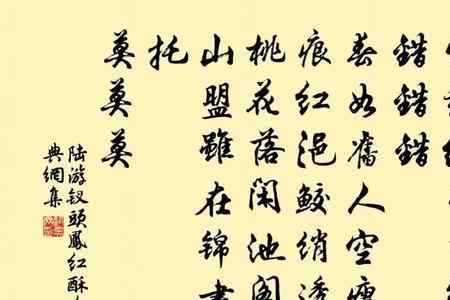 錯錯錯
春如舊人空瘦
痕紅浥鮫綃透
桃花落閑池閣
山盟雖在錦書
托
莫莫莫
陸游釵頭鳳紅酥
典網集